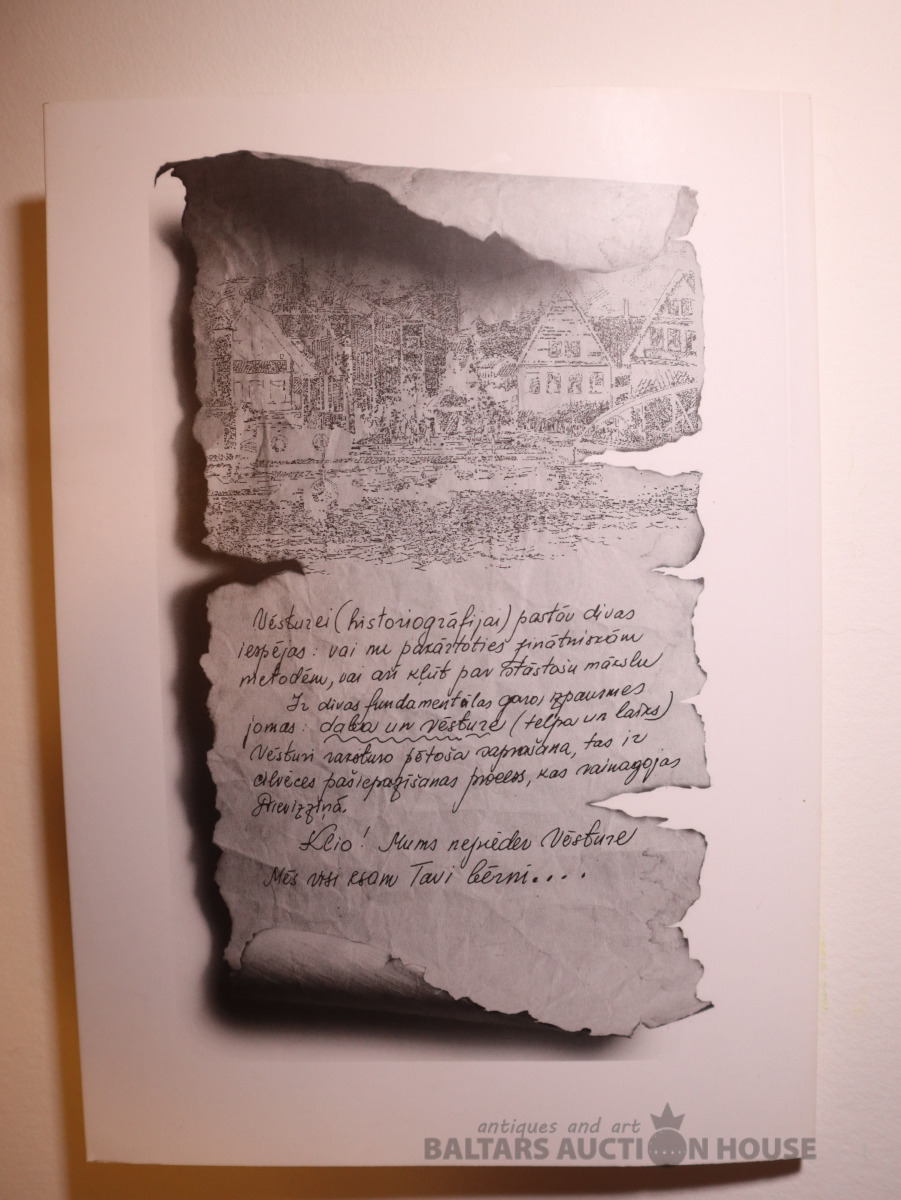 Vēsturei (historiogrāfijai) pastāv divas
iespējas: vai nu pakārtoties zinātniskām
metodēm, vai arī kļūt par stāstošu mākslu
Ir divas fundamentālas gara izpausmes
jomas: daba un vēsture (telpa un laiks)
Vēsturi raksturo pētoša saprašana, tas ir
cilvēces pašiepazīšanas process, kas vainagojas
Dievizziņā.
Klio! Mums nepieder Vēsture
Mēs visi esam Tavi bērni....
antiques and art
BALTARS AUCTION HOUSE